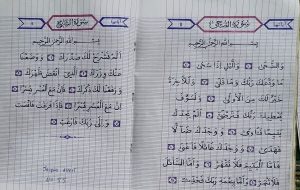 سورة الضحى
بسم الله الرحمن الرحيم
وَالضُّحَى وَاللَّيْلِ إِذَا سَجَى
مَا وَدَّعَكَ رَبُّكَ وَمَا قَلَى وَلَلْآخِرَةُ
خَيْرٌ لَكَ مِنَ الْأُولَى وَلَسَوْفَ
يُعْطِيكَ رَبُّكَ فَتَرْضَى أَلَمْ يَجِدْكَ
يَتِيمًا فَآوَى وَوَجَدَكَ ضَالًّا
فَهَدَى وَوَجَدَكَ عَائِلًا فَأَغْنَى
فَأَمَّا الْيَتِيمَ فَلَا تَقْهَرْ وَأَمَّا السَّائِلَ
فَلَا تَنْهَرْ وَأَمَّا بِنِعْمَةِ رَبِّكَ فَحَدِّثْ
بسم الله الرحمن الرحيم
أَلَمْ نَشْرَحْ لَكَ صَدْرَكَ وَوَضَعْنَا
عَنْكَ وِزْرَكَ الَّذِي أَنْقَضَ ظَهْرَكَ
وَرَفَعْنَا لَكَ ذِكْرَكَ فَإِنَّ مَعَ الْعُسْرِ يُسْرًا
إِنَّ مَعَ الْعُسْرِ يُسْرًا فَإِذَا فَرَغْتَ فَانْصَبْ
وَإِلَى رَبِّكَ فَارْغَبْ